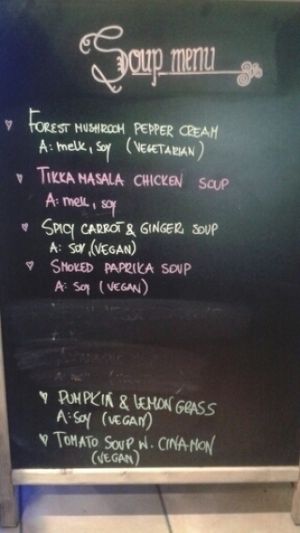 Soup menu
FOREST MUSHROOM PEPPER CREAM
A: melk, soy (VEGETARIAN)
TIKKA MASALA CHICKEN SOUP
A: melk, soy
SPICY CARROT & GINGER SOUP
A: soy, (VEGAN)
SMOKED PAPRIKA SOUP
A: soy (VEGAN)
PUMPKIN & LEMON GRASS
A: soy (VEGAN)
TOMATO SOUP W. CINAMON
(VEGAN)